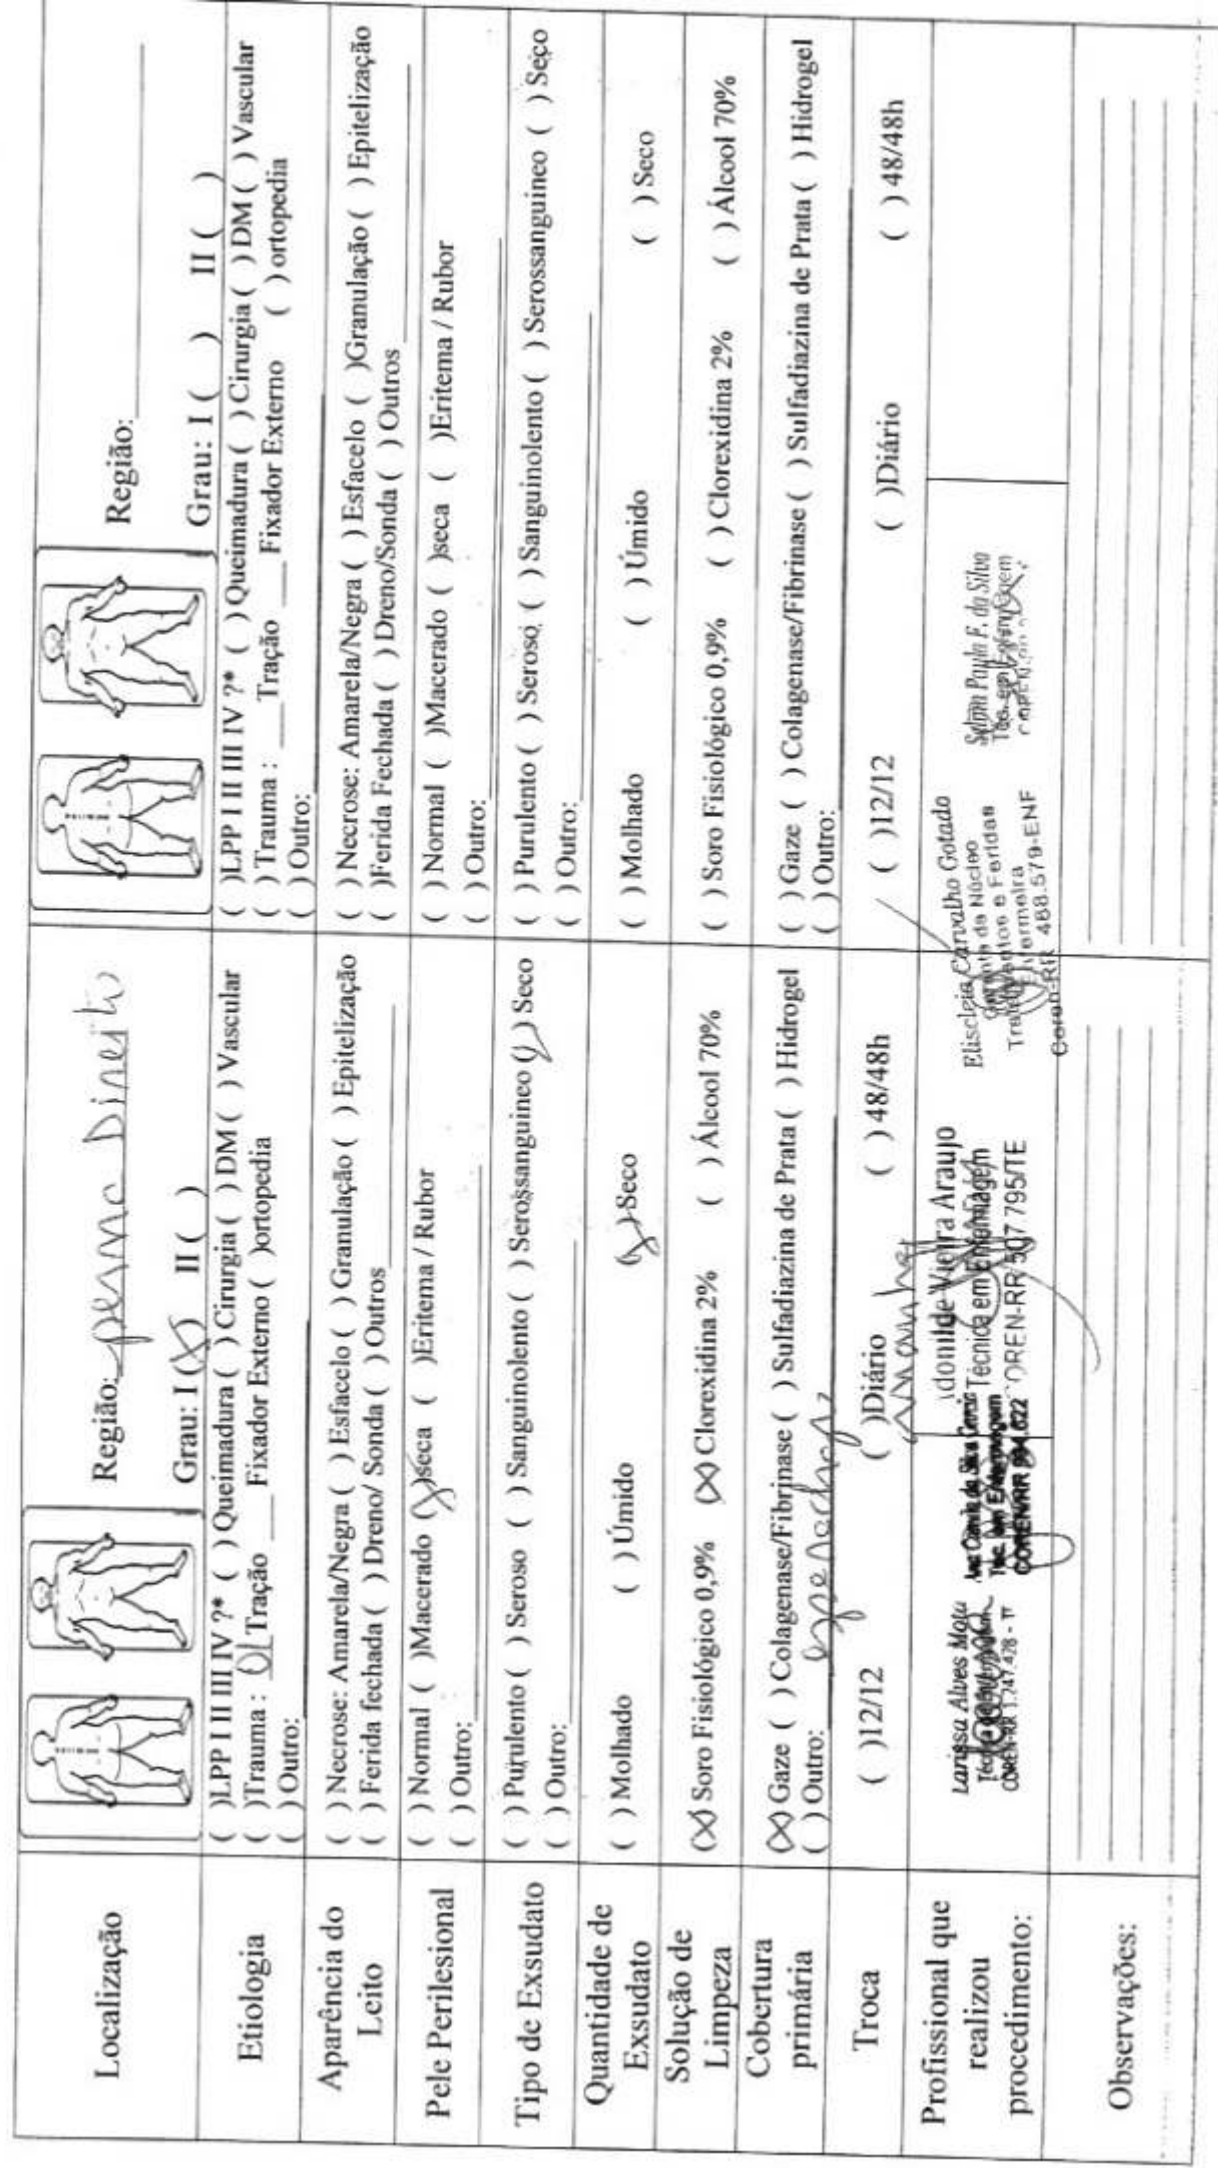 Localização
Região: perna Direita
Grau: I (X) II ( )
Região:
Grau: I ( ) II ( )
Etiologia
( )LPP I II III IV ?* ( ) Queimadura ( ) Cirurgia ( ) DM ( ) Vascular
( )Trauma : 01 Tração ___ Fixador Externo ( )ortopedia
( ) Outro:
( )LPP I II III IV ?* ( ) Queimadura ( ) Cirurgia ( ) DM ( ) Vascular
( ) Trauma : ___ Tração ___ Fixador Externo ( ) ortopedia
( ) Outro:
Aparência do
Leito
( ) Necrose: Amarela/Negra ( ) Esfacelo ( ) Granulação ( ) Epitelização
( ) Ferida fechada ( ) Dreno/ Sonda ( ) Outros
( ) Necrose: Amarela/Negra ( ) Esfacelo ( )Granulação ( ) Epitelização
( )Ferida Fechada ( ) Dreno/Sonda ( ) Outros
Pele Perilesional
( ) Normal ( )Macerado (X)seca ( )Eritema / Rubor
( ) Outro:
( ) Normal ( )Macerado ( )seca ( )Eritema / Rubor
( ) Outro:
Tipo de Exsudato
( ) Purulento ( ) Seroso ( ) Sanguinolento ( ) Serossanguineo (X) Seco
( ) Outro:
( ) Purulento ( ) Seroso ( ) Sanguinolento ( ) Serossanguineo ( ) Seco
( ) Outro:
Quantidade de
Exsudato
( ) Molhado ( ) Úmido (X) Seco
( ) Molhado ( ) Úmido ( ) Seco
Solução de
Limpeza
(X) Soro Fisiológico 0,9% (X) Clorexidina 2% ( ) Álcool 70%
( ) Soro Fisiológico 0,9% ( ) Clorexidina 2% ( ) Álcool 70%
Cobertura
primária
(X) Gaze ( ) Colagenase/Fibrinase ( ) Sulfadiazina de Prata ( ) Hidrogel
( ) Outro:
( ) Gaze ( ) Colagenase/Fibrinase ( ) Sulfadiazina de Prata ( ) Hidrogel
( ) Outro:
Troca
( )12/12 ( )Diário ( ) 48/48h
manhã
( )12/12 ( )Diário ( ) 48/48h
Profissional que
realizou
procedimento:
Larissa Alves Mota
COREN-RR 1.747.428 - TE
Tec. em Enfermagem
COREN-RR 994.622
Idonilde Vieira Araujo
Técnica em Enfermagem
COREN-RR 507 795/TE
Eliscleia Carvalho Gotado
Gerente do Núcleo
Tratamentos e Feridas
Enfermeira
Coren-RR 468.579-ENF
Paula F. da Silva
Tec. em Enfermagem
Observações: